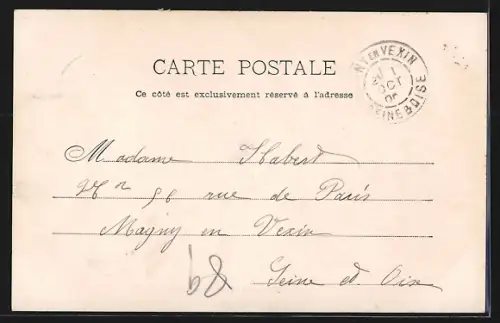 CARTE POSTALE
Ce côté est exclusivement réservé à l'adresse
NY EN VEXIN
1
OCT
SEINE & OISE
Madame Habert
56 rue de Paris
Magny en Vexin
Seine et Oise